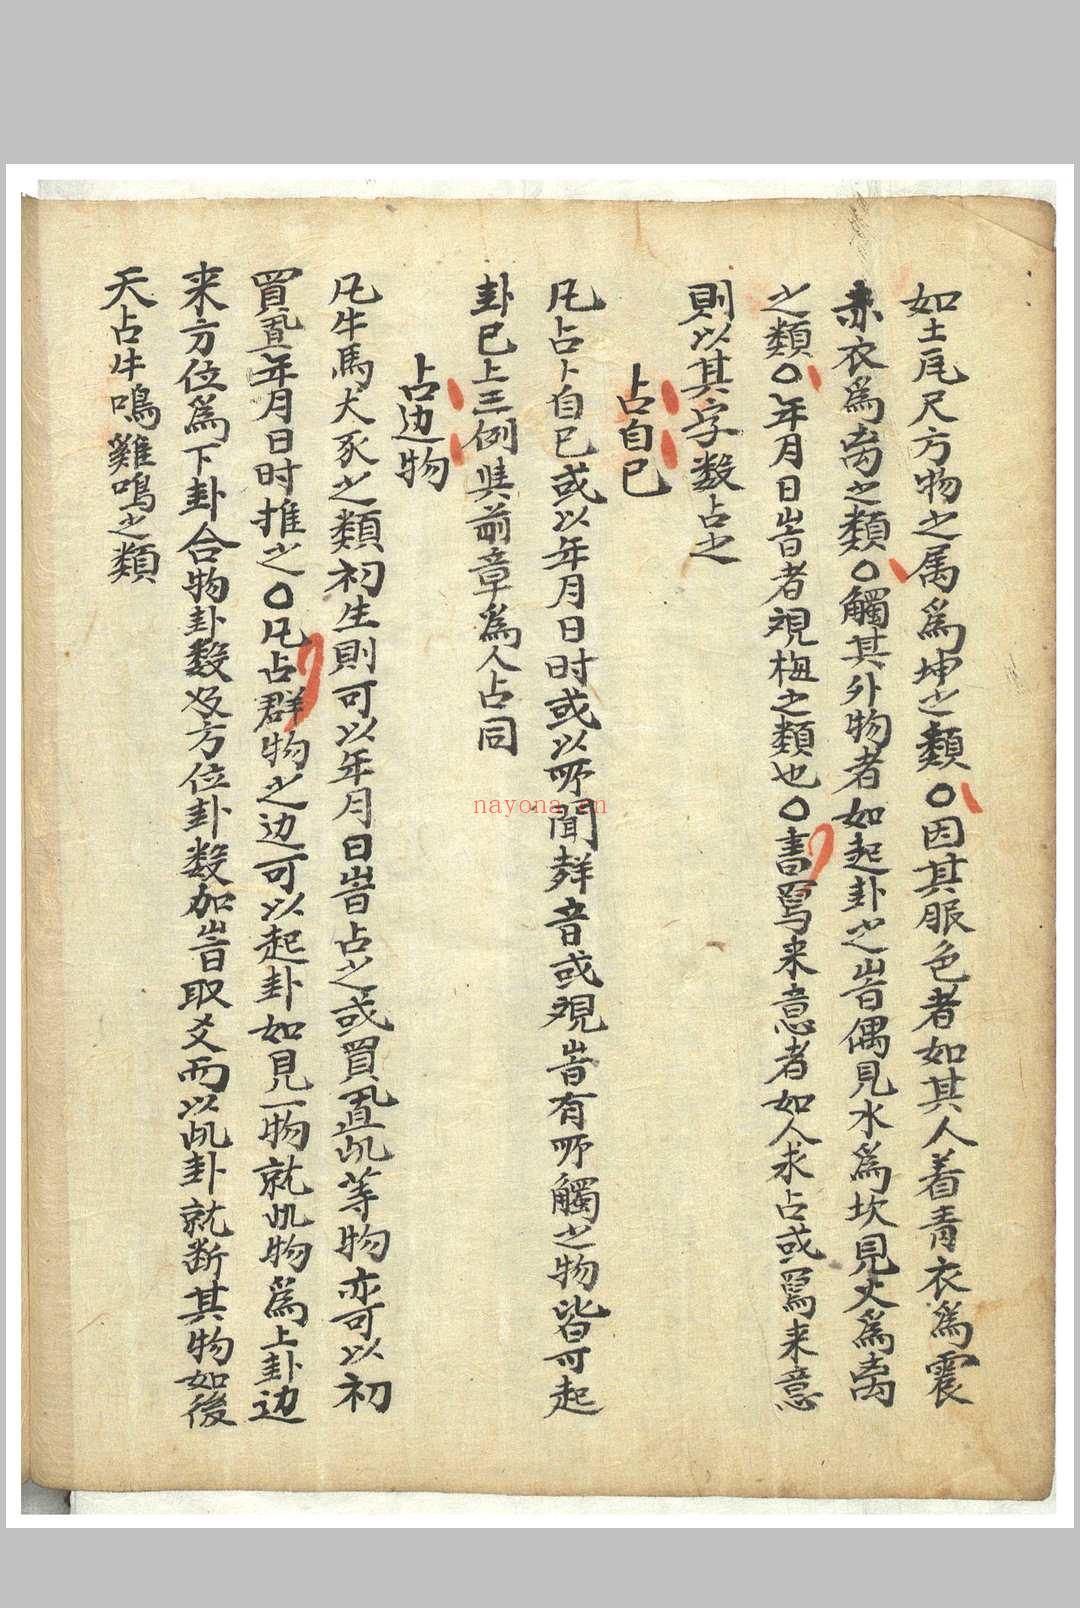 如土瓦尺方物之属爲坤之類○因其服色者如其人着青衣爲震
赤衣爲离之類○觸其外物者如起卦之旹偶見水爲坎見火爲离
之類○年月日旹者視梅之類也○書寫来意者如人求占或寫来意
則以其字数占之
占自己
凡占卜自己或以年月日时或以所聞聲音或視旹有所觸之物皆可起
卦已上三例與前章爲人占同
占边物
凡牛馬犬豕之類初生則可以年月日旹占之或買置此等物亦可以初
買置年月日时推之○凡占群物之边可以起卦如見一物就此物爲上卦边
来方位爲下卦合物卦数及方位卦数加旹取爻而以此卦就断其物如後
天占牛鳴雞鳴之類
nayona.cn